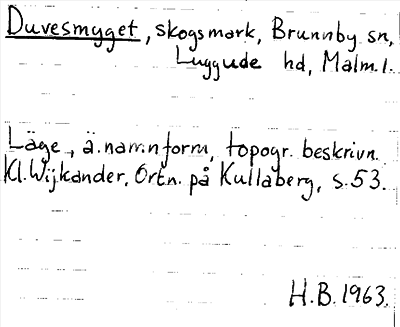 Duvesmyget, skogsmark, Brunnby sn,
Luggude hd, Malm.l.
Läge, ä.namnform, topogr. beskrivn.
Kl.Wijkander, Ortn. på Kullaberg, s.53.
H.B.1963.